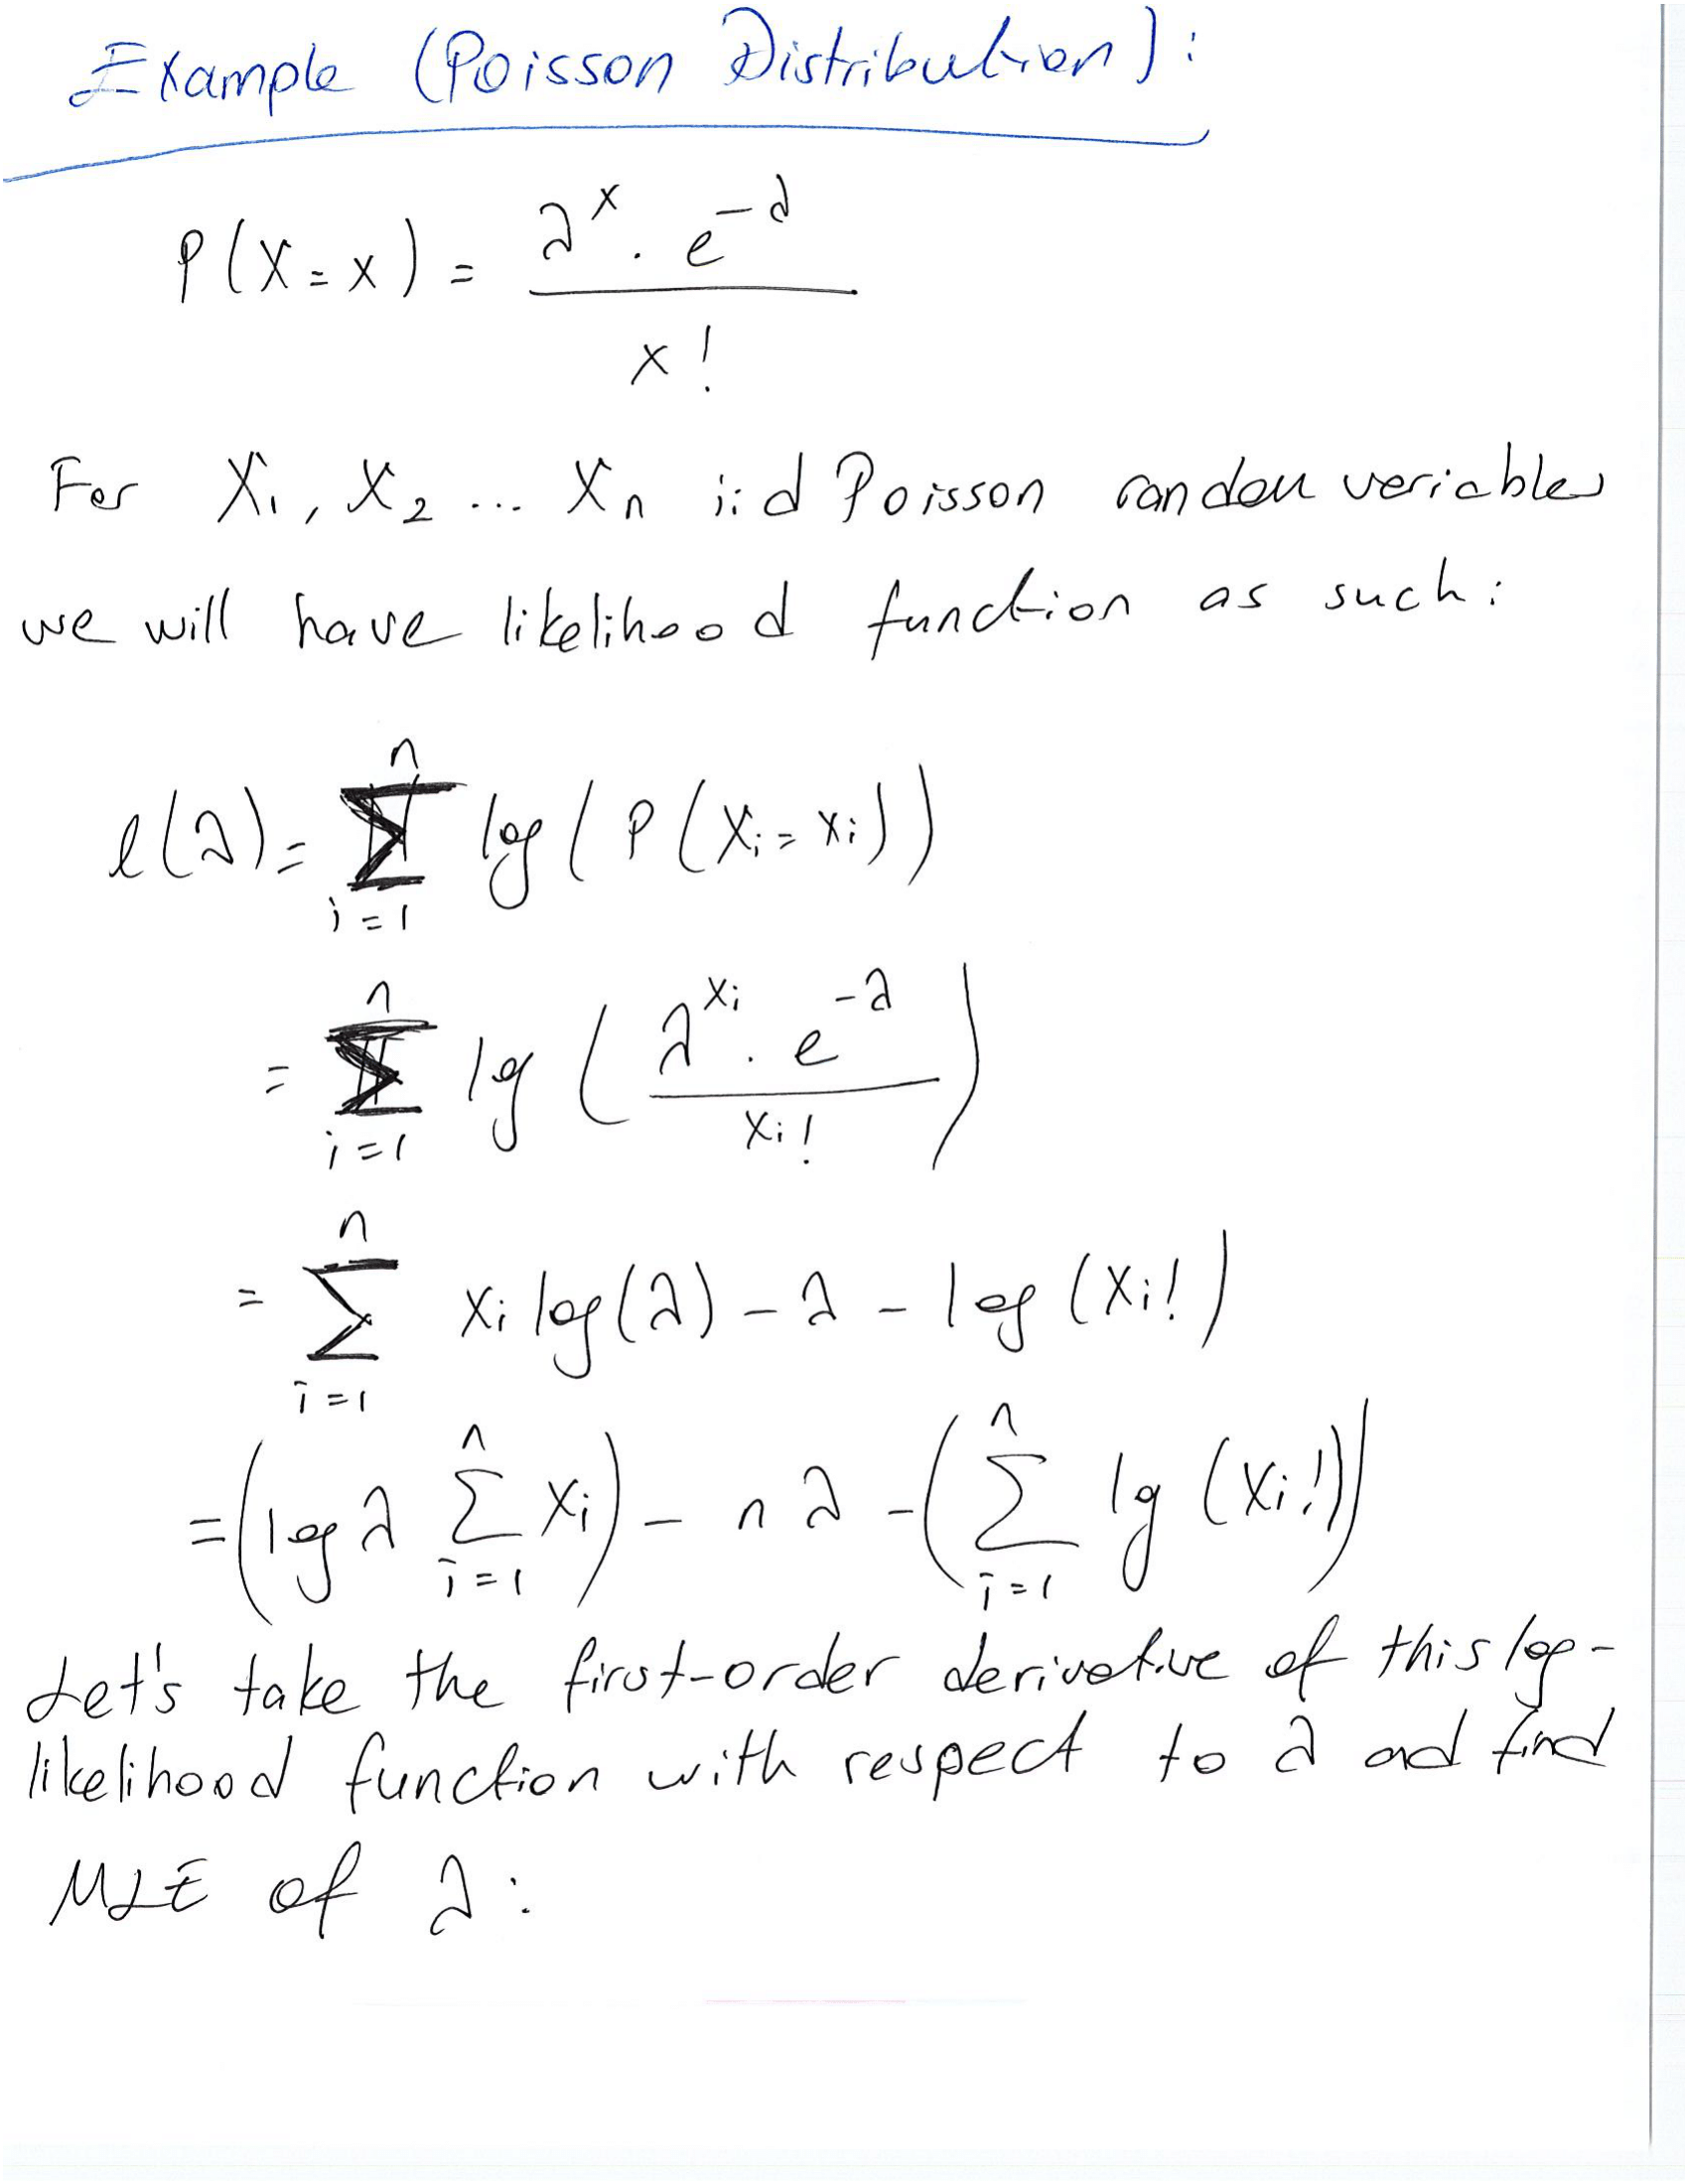 Example (Poisson Distribution):
P(X=x) = λ^x . e^-λ / x!
For X₁, X₂ ... Xn iid Poisson random variables
we will have likelihood function as such:
l(λ) = Σ_{i=1}^{n} log(P(Xi=xi))
= Σ_{i=1}^{n} log(λ^xi . e^-λ / xi!)
= Σ_{i=1}^{n} xi log(λ) - λ - log(xi!)
= (log λ Σ_{i=1}^{n} xi) - nλ - (Σ_{i=1}^{n} log(xi!))
Let's take the first-order derivative of this log-
likelihood function with respect to λ and find
MLE of λ: